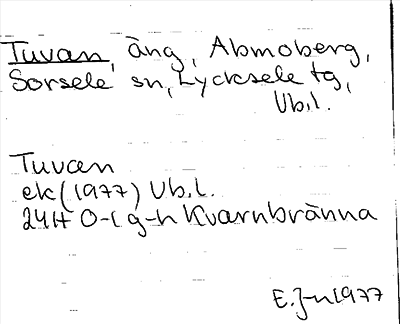 Tuvan, äng, Abmoberg,
Sorsele sn, Lycksele tg,
Vb.l.
Tuvan
ek (1977) Vb.l.
24H 0-1 g-h Kvarnbränna
E.J-n 1977